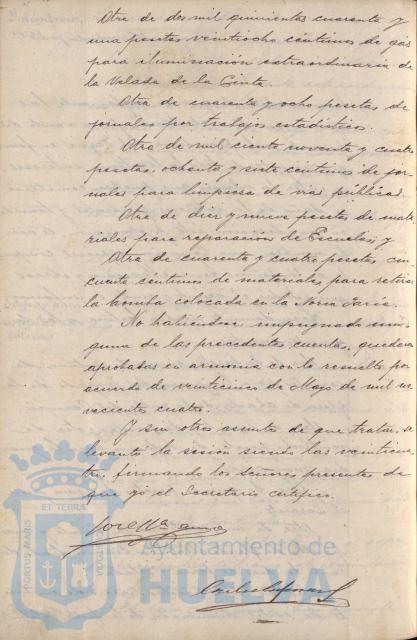 Otra de dos mil quinientas cuarenta y
una pesetas veintiocho céntimos de gas
para iluminación extraordinaria de
la Velada de la Cinta.
Otra de cuarenta y ocho pesetas de
jornales por trabajos estadísticos.
Otra de mil ciento noventa y cuatro
pesetas, ochenta y siete céntimos de jor-
nales para limpieza de vías públicas.
Otra de diez y nueve pesetas de mate-
riales para reparación de Escuelas; y
Otra de cuarenta y cuatro pesetas cin-
cuenta céntimos de materiales para retirar
la bomba colocada en la Noria
No habiéndose impugnado nin-
guna de las precedentes cuentas, quedaron
aprobadas en armonía con lo resuelto por
acuerdo de veinticinco de Mayo de mil no-
vecientos cuatro.
Y sin otros asuntos de que tratar, se
levantó la sesión siendo las veintiuna
firmando los señores presentes de
que yo el Secretario certifico.
José Mª
PORTUS MARIS
ET TERRÆ
Ayuntamiento de
HUELVA